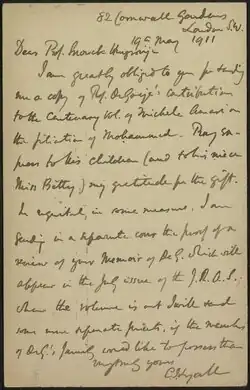 82 Cornwall Gardens
London S.W.
19th May 1911
Dear Prof. Snouck Hurgronje
I am greatly obliged to you for sending
me a copy of Prof. De Goeje's contribution
to the Centenary Vol. of Michele Amari on
the filiation of Mohammed. Pray ex-
press to his children (and to his niece
Miss Betty) my gratitude for the gift.
In requital, in some measure, I am
sending in a separate cover the proof of a
review of your Memoir of De G. which will
appear in the July issue of the J.R.A.S.;
when the volume is out I will send
some more separate prints, if the members
of De G.'s family would like to possess them
very truly yours
C J Lyall